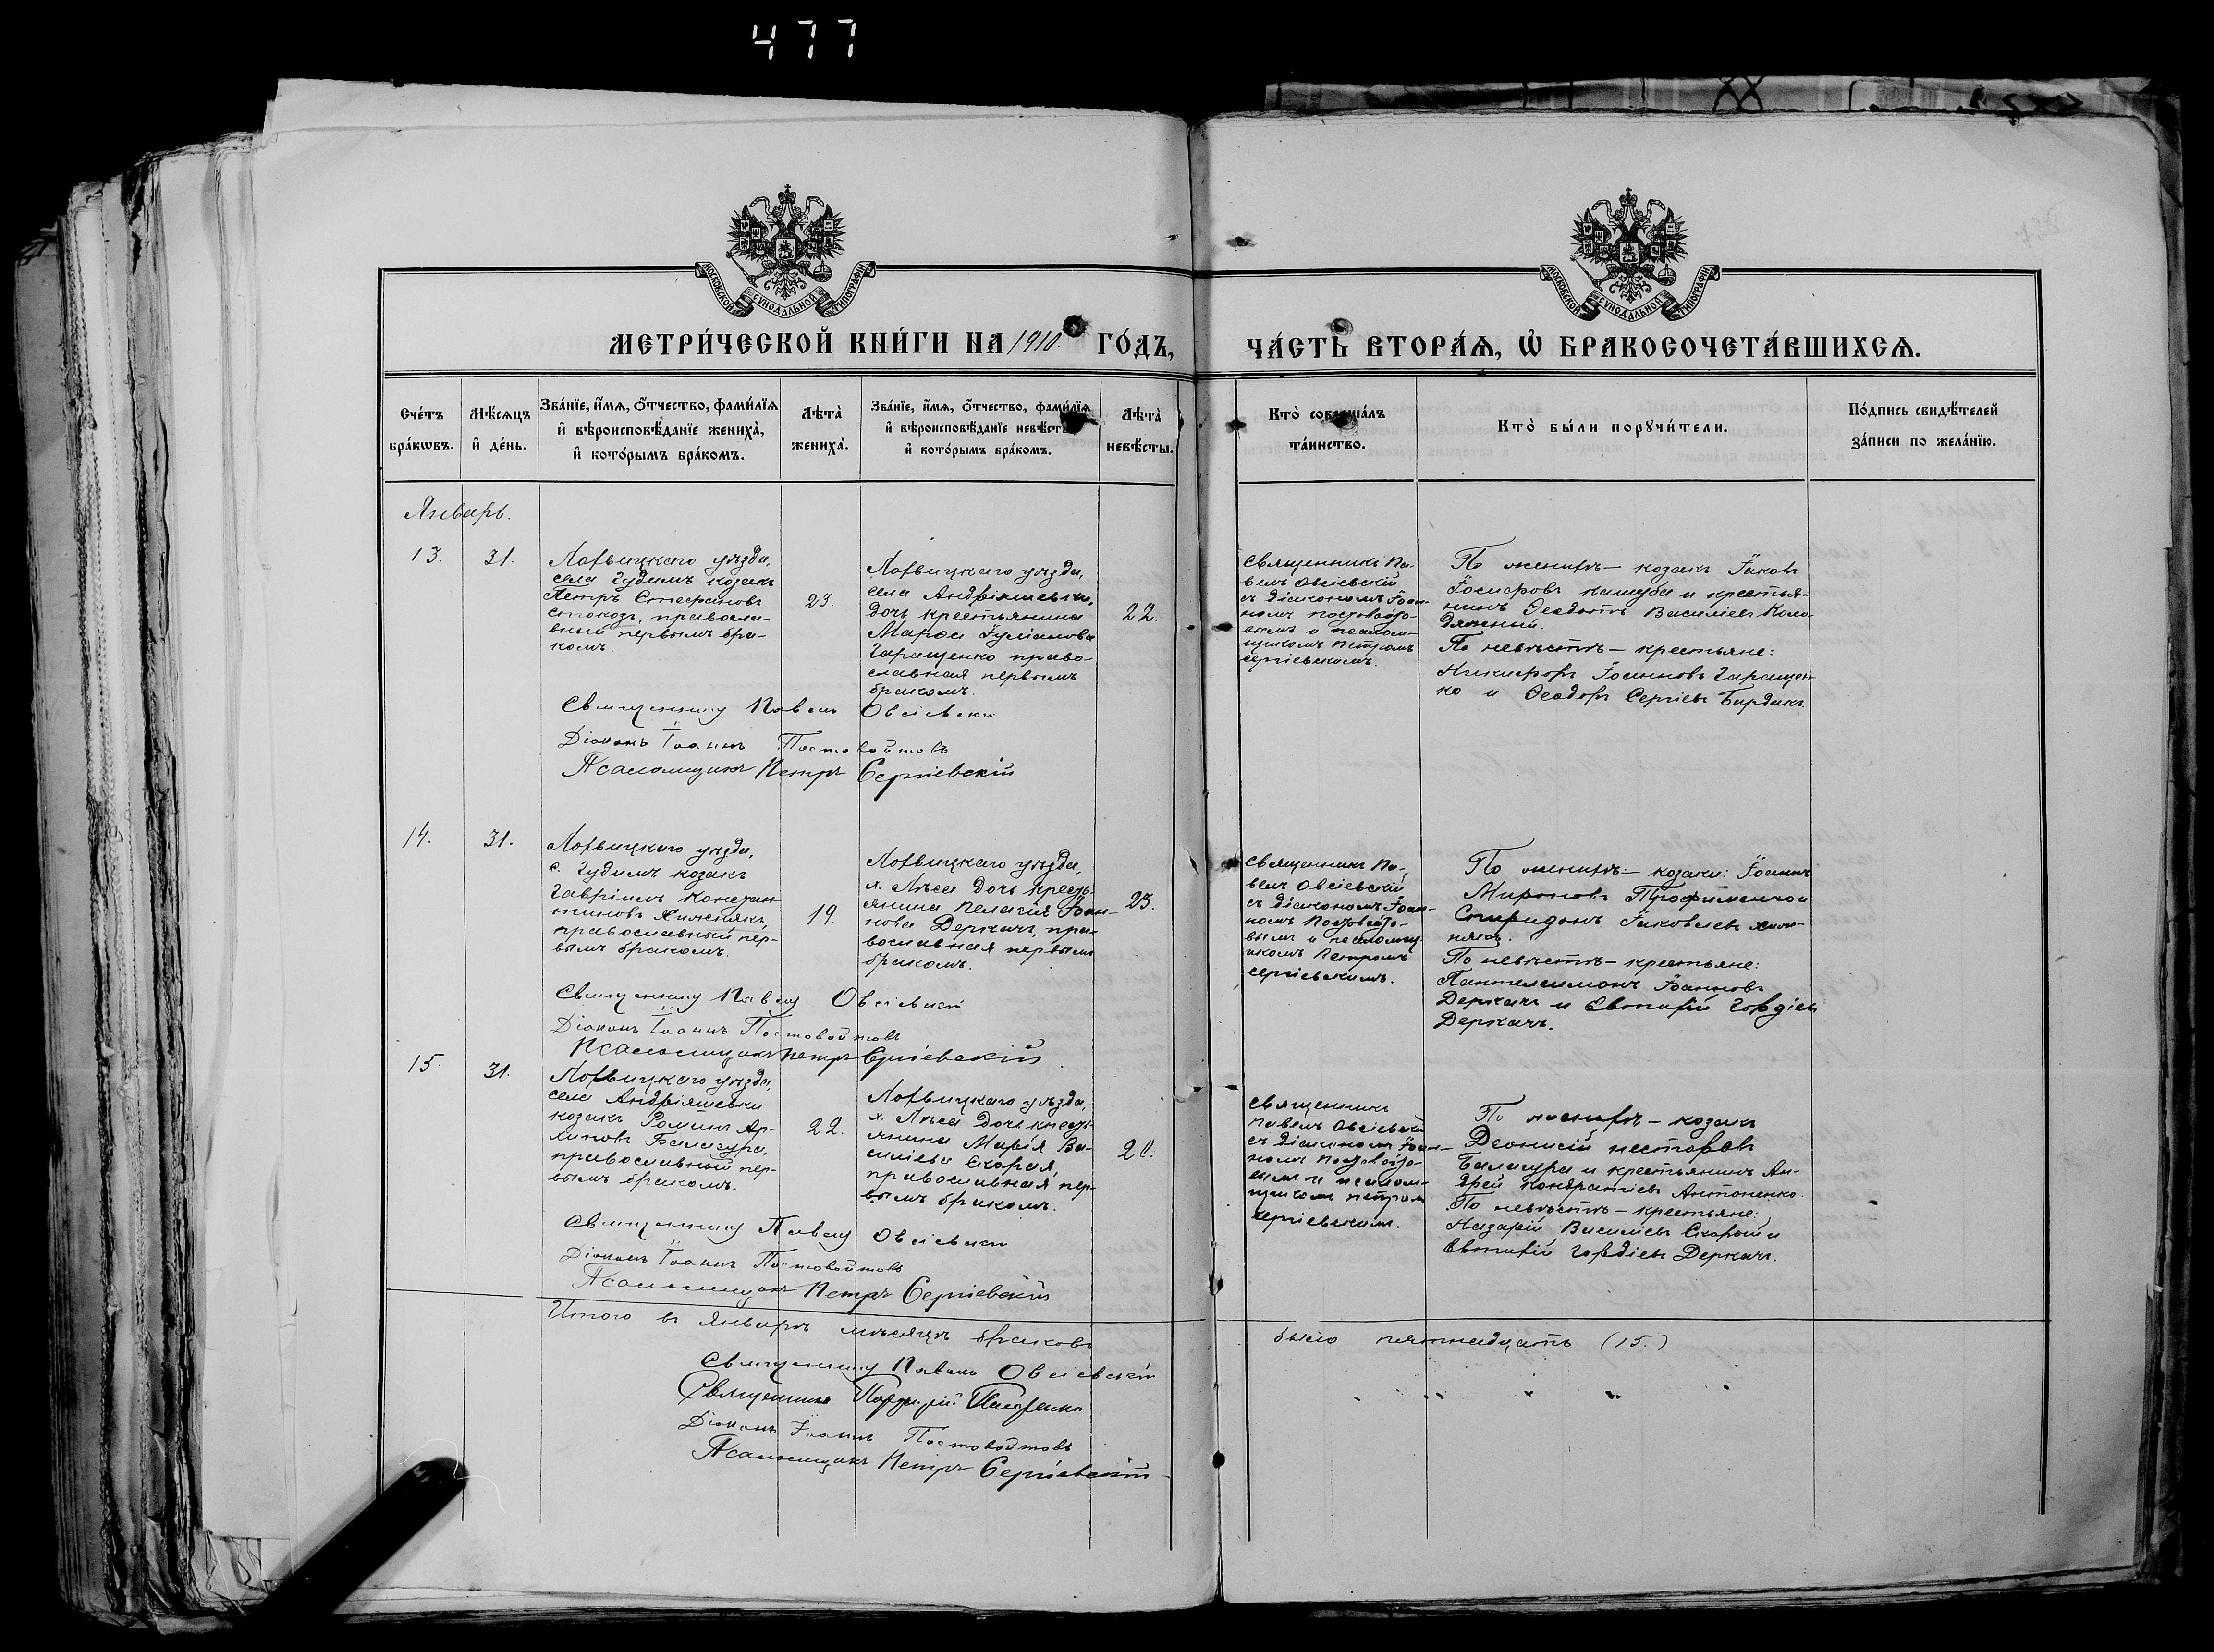 477
МОСКОВСКОЙ СУНОДАЛЬНОЙ ТИПОГРАФІИ
МОСКОВСКОЙ СУНОДАЛЬНОЙ ТИПОГРАФІИ
МЕТРИ́ЧЕСКОЙ КНИ́ГИ НА 1910 ГО́ДЪ,
ЧА́СТЬ ВТОРА́Ѧ, Ѡ҆ БРАКОСОЧЕТА́ВШИХСѦ.
Сче́тъ
бра́кѡвъ.
Мѣ́сѧцъ
и҆ де́нь.
Зва́нїе, и҆́мѧ, ѻ҆́тчество, фами́лїѧ
и҆ вѣроисповѣ́данїе жениха̀,
и҆ кото́рымъ бра́комъ.
Лѣта̀
жениха̀.
Зва́нїе, и҆́мѧ, ѻ҆́тчество, фами́лїѧ
и҆ вѣроисповѣ́данїе невѣ́сты
и҆ кото́рымъ бра́комъ.
Лѣта̀
невѣ́сты.
Кто̀ соверша́лъ
та́инство.
Кто̀ бы́ли порꙋчи́тели.
По́дпись свидѣ́телей
за́писи по жела́нїю.
Январь.
13.
31.
Лохвицкаго уѣзда,
села Гудимъ козакъ
Петръ Стефановъ
Стокозъ, правосла-
вный первымъ бра-
комъ.
23.
Лохвицкаго уѣзда,
села Андріяшевки,
дочь крестьянина
Марѳа Іуліанова
Гаращенко право-
славная первымъ
бракомъ.
22.
Священникъ Па-
велъ Овсіевскій
съ діакономъ Іоан-
номъ Постовойто-
вымъ и псалом-
щикомъ Петромъ
Сергіевскимъ.
По женихѣ — козакъ Іаковъ
Іосифовъ Кашуба и крестья-
нинъ Ѳеодотъ Василіевъ Коло-
дяжный.
По невѣстѣ — крестьяне:
Никифоръ Іоанновъ Гаращен-
ко и Ѳеодоръ Сергіевъ Бардакъ.
Священникъ Павелъ Овсіевскій
Діаконъ Іоаннъ Постовойтовъ
Псаломщикъ Петръ Сергіевскій
14.
31.
Лохвицкаго уѣзда,
с. Гудимъ козакъ
Гавріилъ Констан-
тиновъ Хижнякъ,
православный пер-
вымъ бракомъ.
19.
Лохвицкаго уѣзда,
х. Лѣса дочь кресть-
янина Пелагія Іоан-
нова Деркачъ, пра-
вославная первымъ
бракомъ.
23.
Священникъ Па-
велъ Овсіевскій
съ діакономъ Іоан-
номъ Постовойто-
вымъ и псаломщ-
икомъ Петромъ
Сергіевскимъ.
По женихѣ — козаки: Іоаннъ
Мироновъ Трофименко и
Спиридонъ Іаковлевъ Хиж-
някъ.
По невѣстѣ — крестьяне:
Пантелеимонъ Іоанновъ
Деркачъ и Евтихій Гордіевъ
Деркачъ.
Священникъ Павелъ Овсіевскій
Діаконъ Іоаннъ Постовойтовъ
Псаломщикъ Петръ Сергіевскій
15.
31.
Лохвицкаго уѣзда,
села Андріяшевки
козакъ Романъ Ар-
хиповъ Балагура,
православный пер-
вымъ бракомъ.
22.
Лохвицкаго уѣзда,
х. Лѣса дочь кресть-
янина Марія Ва-
силіева Скорая,
православная, пер-
вымъ бракомъ.
Священникъ
Павелъ Овсіевскій
съ діакономъ Іоан-
номъ Постовойто-
вымъ и псалом-
щикомъ Петромъ
Сергіевскимъ.
По женихѣ — козакъ
Діонисій Несторовъ
Балагура и крестьянинъ Ан-
дрей Кондратіевъ Антоненко.
По невѣстѣ — крестьяне:
Назарій Василіевъ Скорый и
Евтихій Гордіевъ Деркачъ.
Священникъ Павелъ Овсіевскій
Діаконъ Іоаннъ Постовойтовъ
Псаломщикъ Петръ Сергіевскій
Итого въ Январѣ мѣсяцѣ браковъ
было пятнадцать (15.)
Священникъ Павелъ Овсіевскій
Священникъ
Діаконъ Іоаннъ Постовойтовъ
Псаломщикъ Петръ Сергіевскій